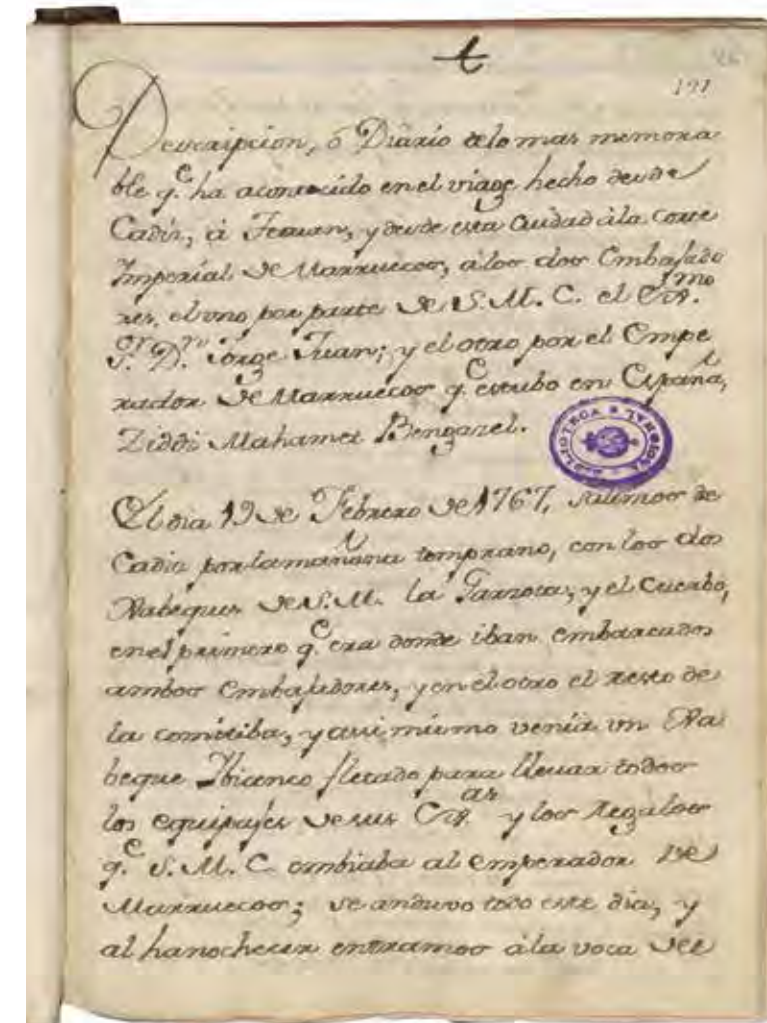 t
191
Descripcion, ó Diario delo mas memora
ble q.e ha acontecido en el viage hecho desde
Cadiz, á Tetuan, y desde esta Ciudad ála corte
Imperial de Marruecos, álos dos Embajado
res, el uno por parte de S.M.C. el Ex.mo
S.r D.n Jorge Juan; y el otro por el Empe
rador de Marruecos q.e estubo en España,
Ziddi Mahamet Bengazel.
BIBLIOTECA
El dia 19 de Febrero de 1767, salimos de
Cadiz por la mañana temprano, con los dos
Xabeques de S.M. la Garzota, y el Cuerbo,
en el primero q.e era donde iban embarcados
ambos Embajadores, y en el otro el resto de
la comitiba, y asi mismo venia un Xa
beque Ibianco fletado para llevar todos
los equipajes de sus Ex.as y los regalos
q.e S.M.C. embiaba al emperador de
Marruecos; se anduvo todo este dia, y
al hanochecer entramos ála voca del